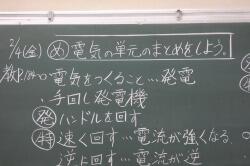 2/4(金) め 電気の単元のまとめをしよう。
教P.184〜 電気をつくること…発電
・手回し発電機
発 ハンドルを回す
特 速く回す…電流が強くなる。
逆に回す…電流が逆